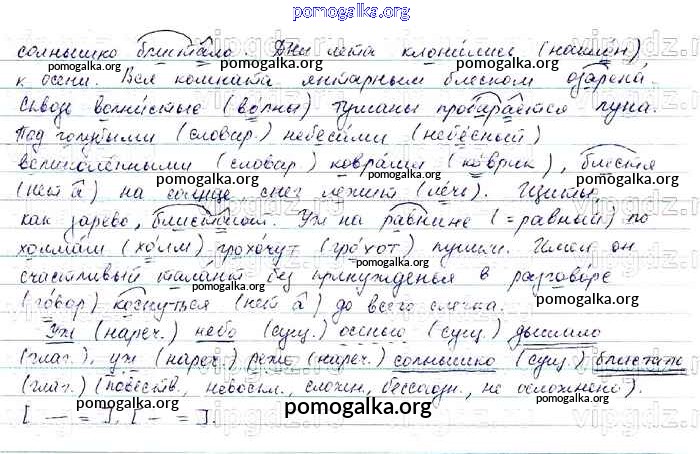 pomogalka.org
солнышко блистало. Дни лета клонились (наклон)
к осени. Вся комната янтарным блеском озарена.
Сквозь волнистые (волны) туманы пробирается луна.
Под голубыми (словар.) небесами (небесный)
великолепными (словар.) коврами (коврик), блестя
(нет â) на солнце снег лежит (лечь). Щиты,
как зарево, блистают. Уж на равнине (= равный) по
холмам (холм) грохочут (грохот) пушки. Имел он
счастливый талант без принужденья в разговоре
(говор) коснуться (нет â) до всего слегка.
Уж (нареч.) небо (сущ.) осенью (сущ.) дышало
(глаг.), уж (нареч.) реже (нареч.) солнышко (сущ.) блистало
(глаг.) (повеств., невоскл., сложн., бессоюзн., не осложнено).
[ — = ], [ - = ].
pomogalka.org